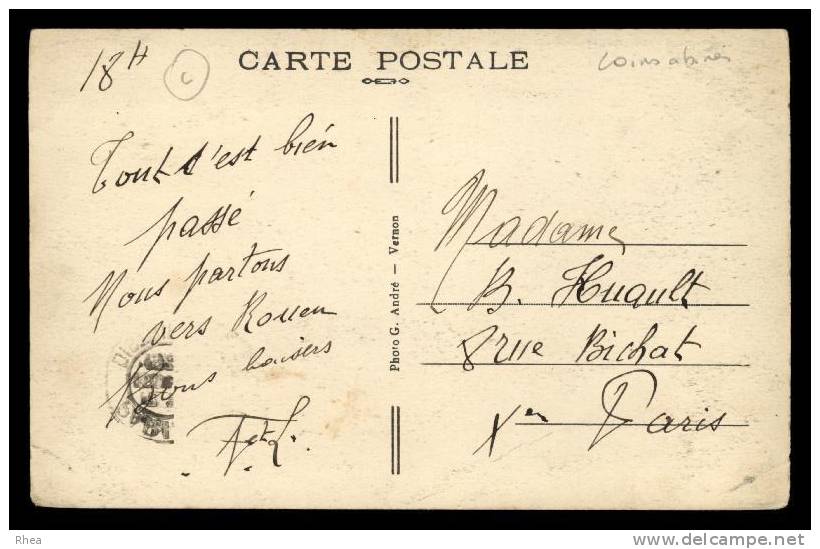 18H
CARTE POSTALE
Tout s'est bien
passé
Nous partons
vers Rouen
baisers
A et L.
Photo G. André — Vernon
Madame
B. Huault
8 rue Bichat
Xe Paris
Rhea
www.delcampe.net